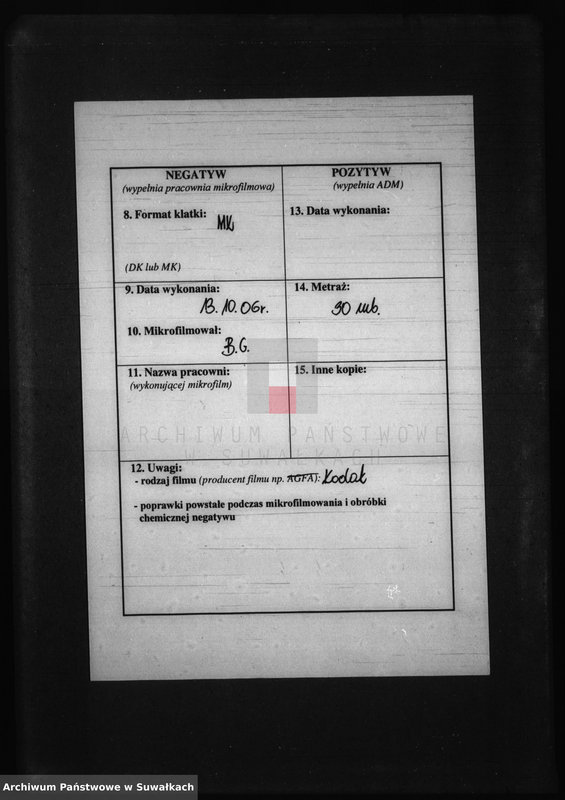 NEGATYW
(wypełnia pracownia mikrofilmowa)
8. Format klatki:
MK
(DK lub MK)
POZYTYW
(wypełnia ADM)
13. Data wykonania:
9. Data wykonania:
13.10.06r.
10. Mikrofilmował:
B.G.
14. Metraż:
30 mb.
11. Nazwa pracowni:
(wykonującej mikrofilm)
15. Inne kopie:
ARCHIWUM PAŃSTWOWE
W SUWAŁKACH
12. Uwagi:
- rodzaj filmu (producent filmu np. AGFA): Kodak
- poprawki powstałe podczas mikrofilmowania i obróbki
chemicznej negatywu
Archiwum Państwowe w Suwałkach